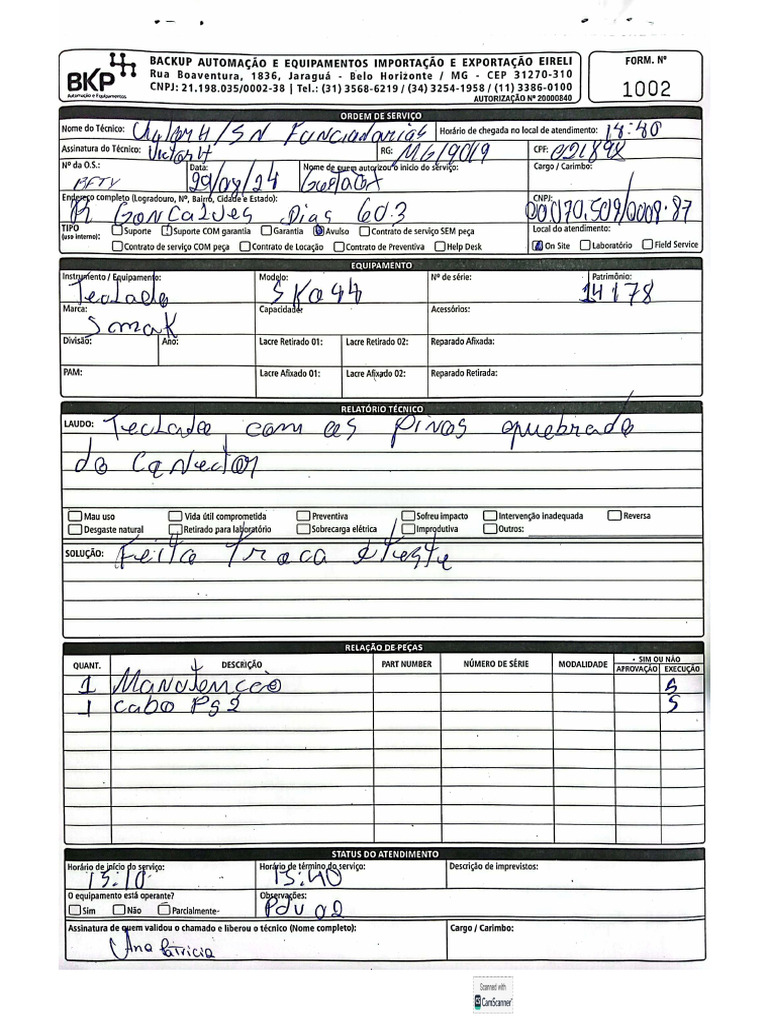 BKP
Automação e Equipamentos
BACKUP AUTOMAÇÃO E EQUIPAMENTOS IMPORTAÇÃO E EXPORTAÇÃO EIRELI
Rua Boaventura, 1836, Jaraguá - Belo Horizonte / MG - CEP 31270-310
CNPJ: 21.198.035/0002-38 | Tel.: (31) 3568-6219 / (34) 3254-1958 / (11) 3386-0100
AUTORIZAÇÃO Nº 20000840
FORM. Nº
1002
ORDEM DE SERVIÇO
Nome do Técnico: /SN Funcionarios Horário de chegada no local de atendimento:
Assinatura do Técnico: Victor H RG: MG/9019 CPF: 021898
Nº da O.S.: Data: 29/08/24 Nome de quem autorizou o início do serviço: Cargo / Carimbo:
Endereço completo (Logradouro, Nº, Bairro, Cidade e Estado): R Goncalves Dias 603 CNPJ: 00070.509/0009.87
TIPO (uso interno): Suporte Suporte COM garantia Garantia Avulso Contrato de serviço SEM peça Local do atendimento:
Contrato de serviço COM peça Contrato de Locação Contrato de Preventiva Help Desk On Site Laboratório Field Service
EQUIPAMENTO
Instrumento / Equipamento: Teclado Modelo: SKO44 Nº de série: Patrimônio: 14178
Marca: Smak Capacidade: Acessórios:
Divisão: Ano: Lacre Retirado 01: Lacre Retirado 02: Reparado Afixada:
PAM: Lacre Afixado 01: Lacre Afixado 02: Reparado Retirada:
RELATÓRIO TÉCNICO
LAUDO: Teclado com os Pinos quebrado
do Conector
Mau uso Vida útil comprometida Preventiva Sofreu impacto Intervenção inadequada Reversa
Desgaste natural Retirado para laboratório Sobrecarga elétrica Improdutiva Outros:
SOLUÇÃO: Feito Troca e teste
RELAÇÃO DE PEÇAS
QUANT. DESCRIÇÃO PART NUMBER NÚMERO DE SÉRIE MODALIDADE • SIM OU NÃO
APROVAÇÃO EXECUÇÃO
1 Manutencão S
1 Cabo PS2 S
STATUS DO ATENDIMENTO
Horário de início do serviço: 15:10 Horário de término do serviço: 15:40 Descrição de imprevistos:
O equipamento está operante? Observações:
Sim Não Parcialmente- Pdv 02
Assinatura de quem validou o chamado e liberou o técnico (Nome completo): Cargo / Carimbo:
Ana Patricia
Scanned with
CS CamScanner